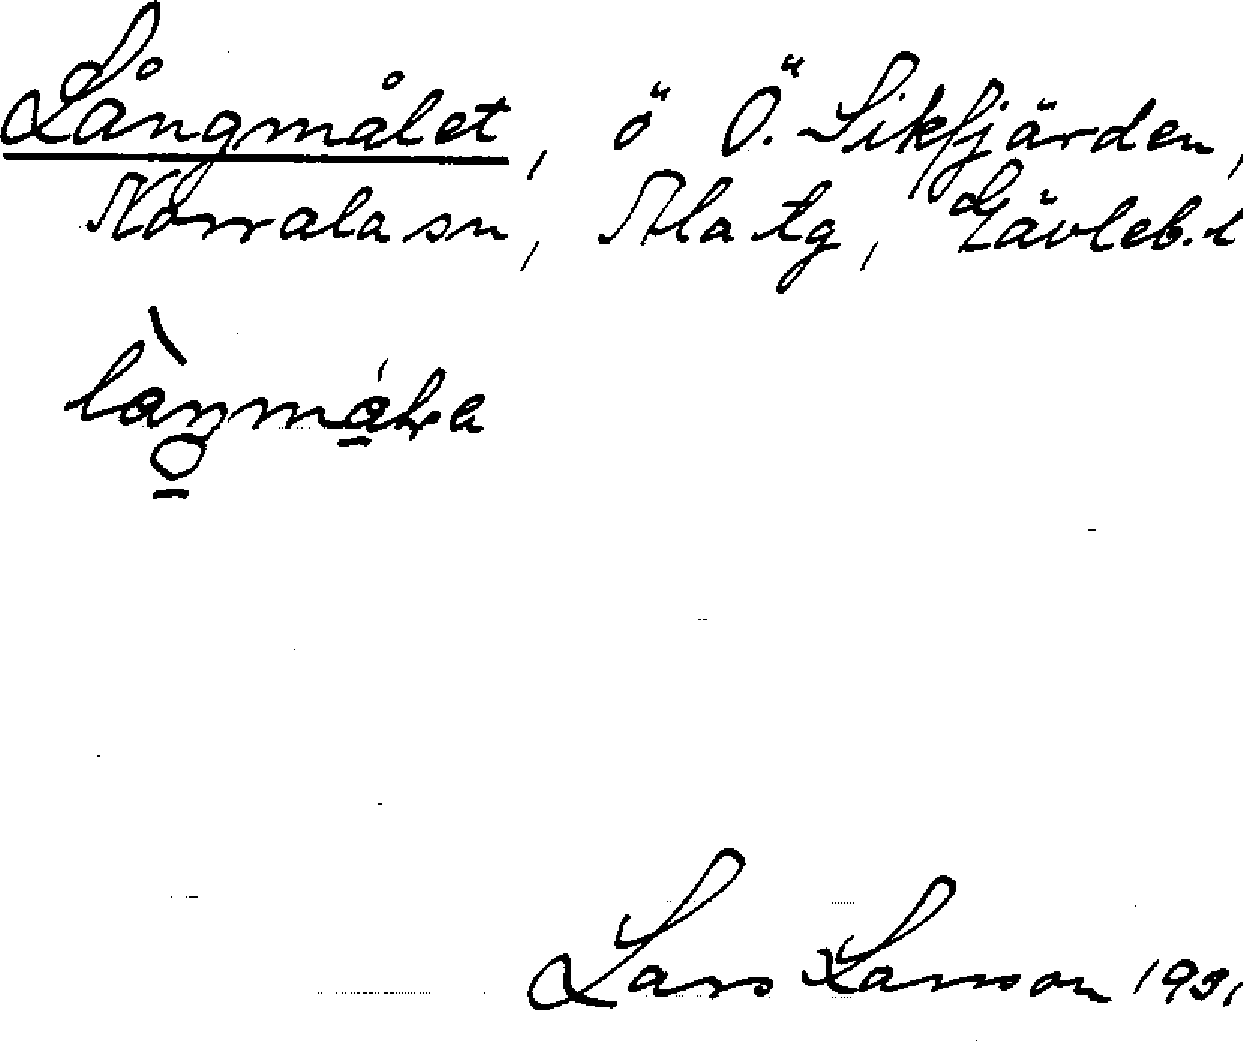 Långmålet, ö Ö. Sikfjärden,
Norrala sn, Ala tg, Gävleb. l
Lars Larsson 1931